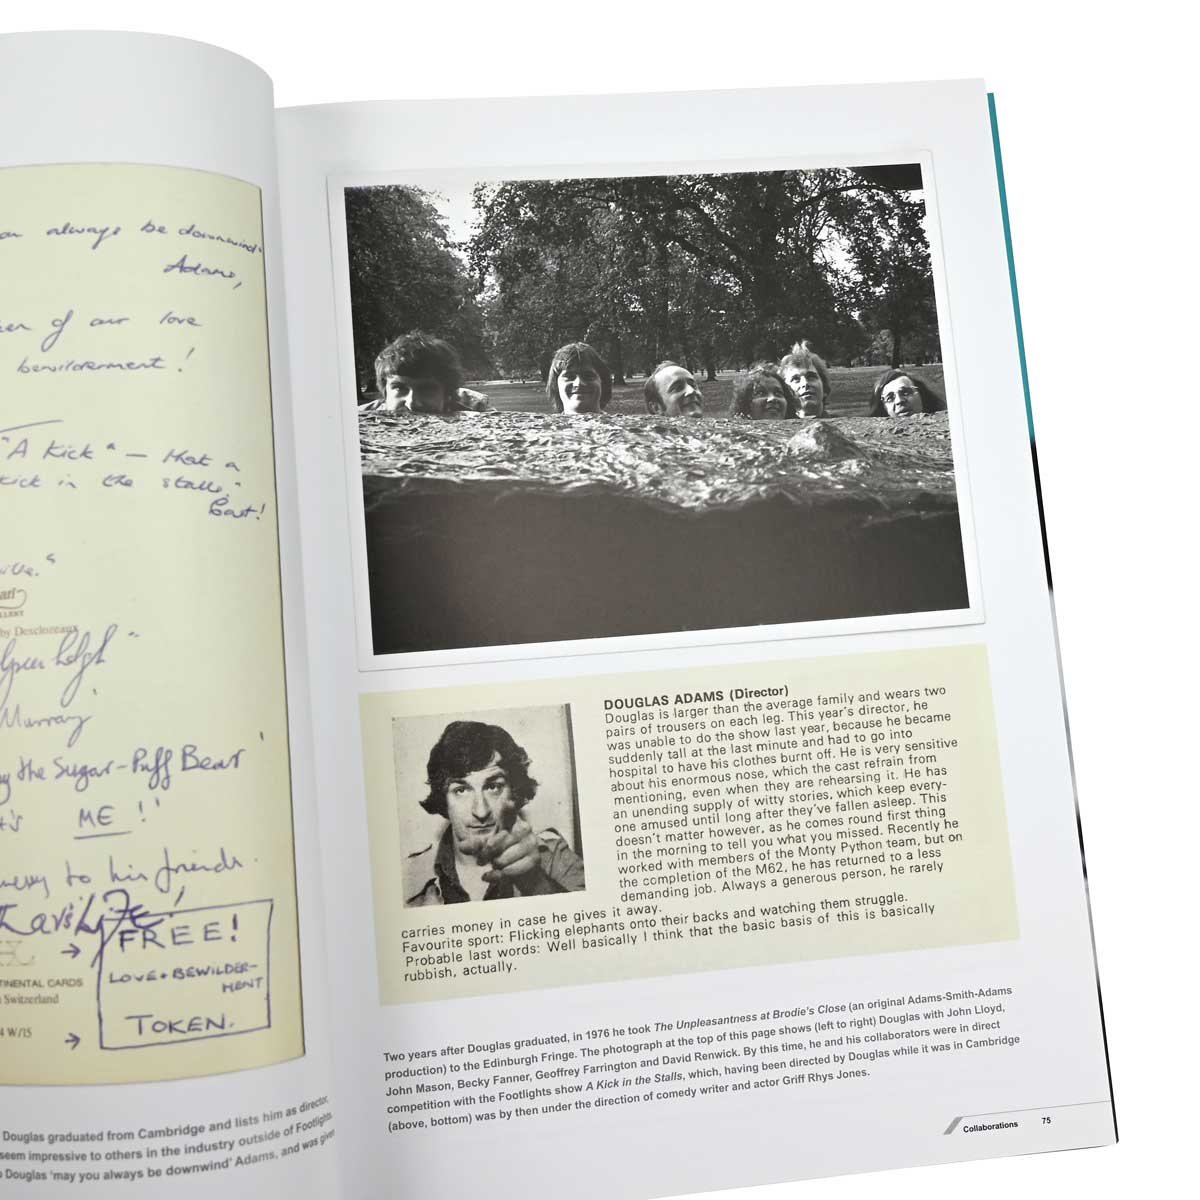 an always be downwind"
Adams,
of our love
bewilderment!
"A Kick" — that a
kick in the stalls,"
Cast!
by Desclozeaux
Murray
the Sugar-Puff Bear
ME!'
to his friends.
FREE!
LOVE + BEWILDER-
MENT
TOKEN.
TINENTAL CARDS
Switzerland
4 W/15
Douglas graduated from Cambridge and lists him as director,
seem impressive to others in the industry outside of Footlights
Douglas 'may you always be downwind' Adams, and was given
DOUGLAS ADAMS (Director)
Douglas is larger than the average family and wears two
pairs of trousers on each leg. This year's director, he
was unable to do the show last year, because he became
suddenly tall at the last minute and had to go into
hospital to have his clothes burnt off. He is very sensitive
about his enormous nose, which the cast refrain from
mentioning, even when they are rehearsing it. He has
an unending supply of witty stories, which keep every-
one amused until long after they've fallen asleep. This
doesn't matter however, as he comes round first thing
in the morning to tell you what you missed. Recently he
worked with members of the Monty Python team, but on
the completion of the M62, he has returned to a less
demanding job. Always a generous person, he rarely
carries money in case he gives it away.
Favourite sport: Flicking elephants onto their backs and watching them struggle.
Probable last words: Well basically I think that the basic basis of this is basically
rubbish, actually.
Two years after Douglas graduated, in 1976 he took The Unpleasantness at Brodie's Close (an original Adams-Smith-Adams
production) to the Edinburgh Fringe. The photograph at the top of this page shows (left to right) Douglas with John Lloyd,
John Mason, Becky Fanner, Geoffrey Farrington and David Renwick. By this time, he and his collaborators were in direct
competition with the Footlights show A Kick in the Stalls, which, having been directed by Douglas while it was in Cambridge
(above, bottom) was by then under the direction of comedy writer and actor Griff Rhys Jones.
Collaborations 75